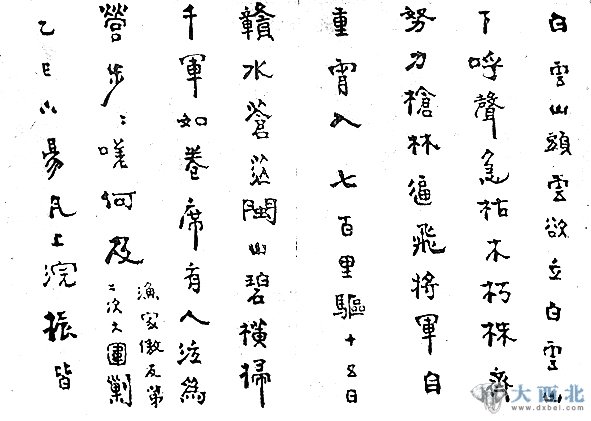 白雲山頭雲欲立白雲山
下呼聲急枯木朽株齊
努力槍林逼飛將軍自
重霄入 七百里驅十五日
贛水蒼茫閩山碧橫掃
千軍如卷席有人泣為
營步〻嗟何及
漁家傲反第
二次大圍剿
乙巳小上浣振皆
大西北
www.dxbei.com